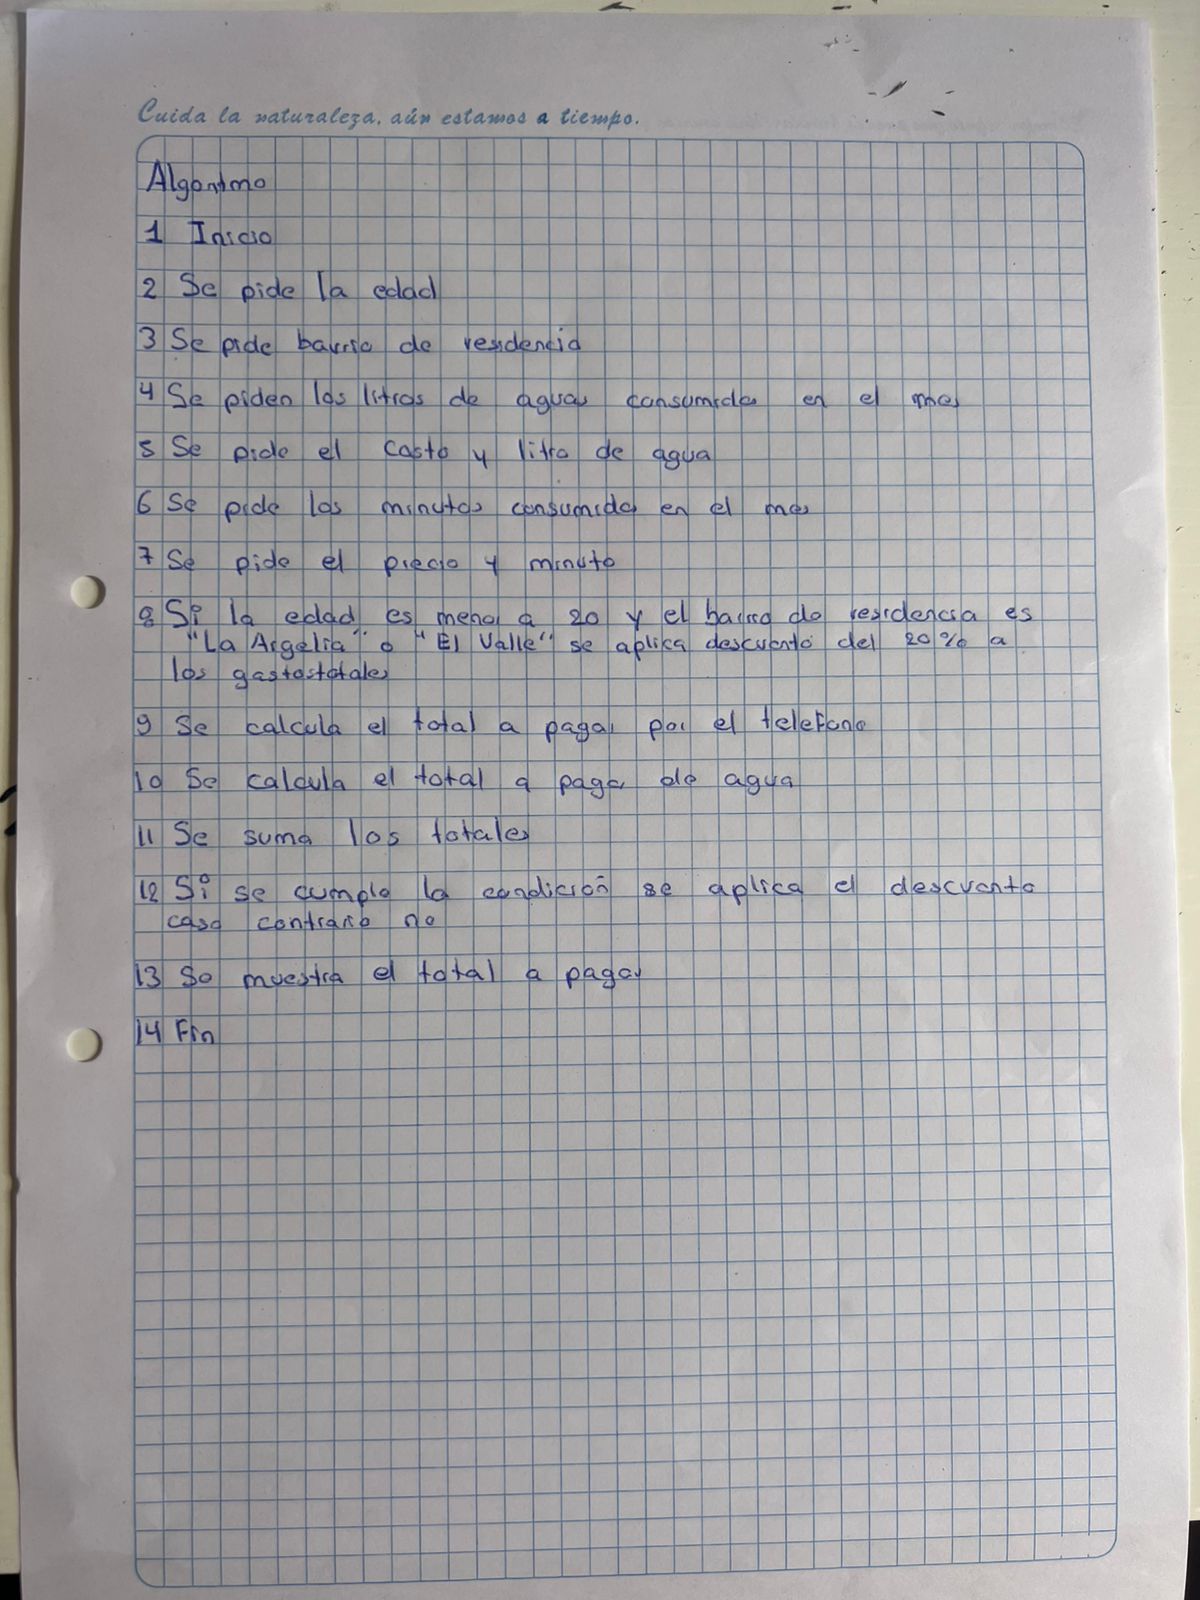 Cuida la naturaleza, aún estamos a tiempo.
Algoritmo
1 Inicio
2 Se pide la edad
3 Se pide barrio de residencia
4 Se piden los litros de aguas consumidos en el mes
5 Se pide el costo y litro de agua
6 Se pide los minutos consumidos en el mes
7 Se pide el precio y minuto
8 Si la edad es menor a 20 y el barrio de residencia es
"La Argelia" o "El Valle" se aplica descuento del 20% a
los gastostotales
9 Se calcula el total a pagar por el telefono
10 Se calcula el total a pagar de agua
11 Se suma los totales
12 Si se cumple la condición se aplica el descuento
caso contrario no
13 Se muestra el total a pagar
14 Fin